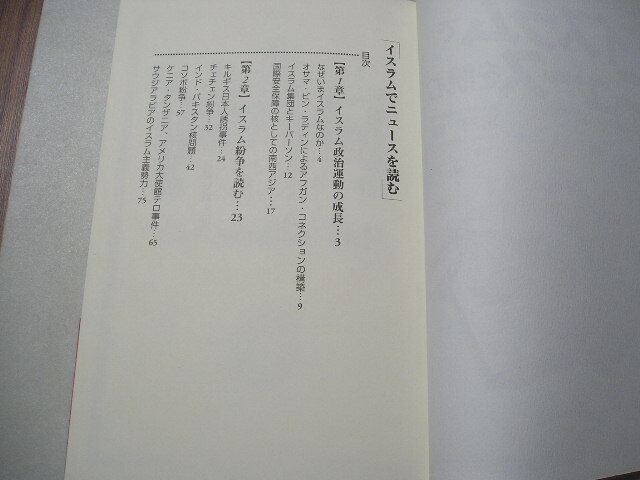 「イスラムでニュースを読む」
目次
【第1章】イスラム政治運動の成長…3
なぜいまイスラムなのか…4
オサマ・ビン・ラディンによるアフガン・コネクションの構築…9
イスラム集団とキーパーソン…12
国際安全保障の核としての南西アジア…17
【第2章】イスラム紛争を読む…23
キルギス日本人誘拐事件…24
チェチェン紛争…32
インド・パキスタン核問題…42
コソボ紛争…57
ケニア・タンザニア、アメリカ大使館テロ事件…65
サウジアラビアのイスラム主義勢力…75